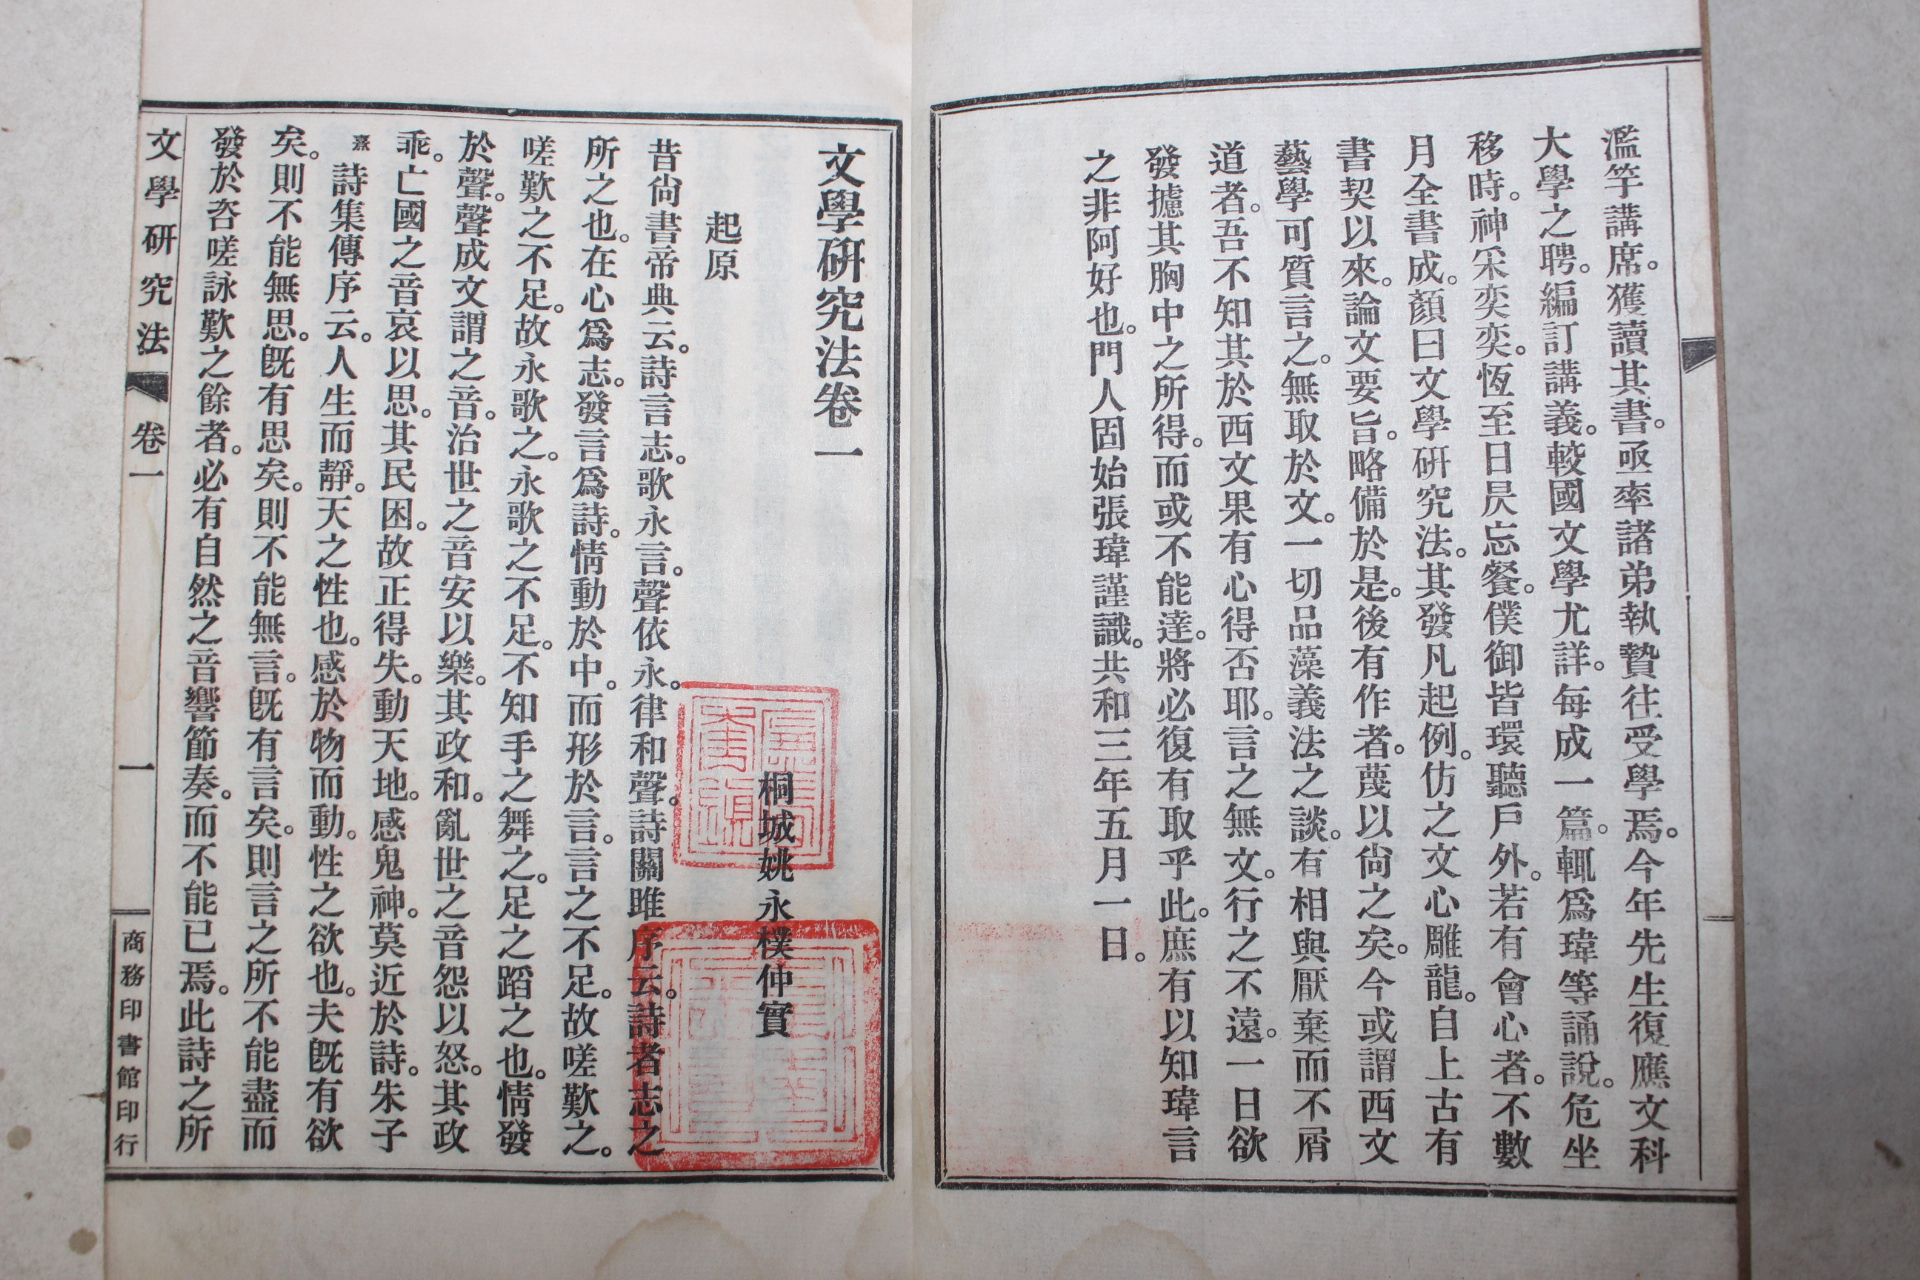 濫竽講席。獲讀其書。亟率諸弟執贄往受學焉。今年先生復應文科
大學之聘。編訂講義。較國文學尤詳。每成一篇。輒爲瑋等誦說。危坐
移時。神采奕奕。恆至日昃忘餐。僕御皆環聽戶外。若有會心者。不數
月全書成。顏曰文學研究法。其發凡起例。仿之文心雕龍。自上古有
書契以來。論文要旨。略備於是。後有作者。蔑以尙之矣。今或謂西文
藝學可質言之。無取於文。一切品藻義法之談。有相與厭棄而不屑
道者。吾不知其於西文果有心得否耶。言之無文。行之不遠。一日欲
發攄其胸中之所得。而或不能達。將必復有取乎此。庶有以知瑋言
之非阿好也。門人固始張瑋謹識。共和三年五月一日。
文學研究法卷一
桐城姚永樸仲實
起原
昔尙書帝典云。詩言志。歌永言。聲依永。律和聲。詩關雎序云。詩者志之
所之也。在心爲志。發言爲詩。情動於中。而形於言。言之不足。故嗟歎之。
嗟歎之不足。故永歌之。永歌之不足。不知手之舞之。足之蹈之也。情發
於聲。聲成文謂之音。治世之音安以樂。其政和。亂世之音怨以怒。其政
乖。亡國之音哀以思。其民困。故正得失。動天地。感鬼神。莫近於詩。朱子
熹詩集傳序云。人生而靜。天之性也。感於物而動。性之欲也。夫旣有欲
矣。則不能無思。旣有思矣。則不能無言。旣有言矣。則言之所不能盡而
發於咨嗟詠歎之餘者。必有自然之音響節奏。而不能已焉。此詩之所
文學研究法 卷一 一 商務印書館印行